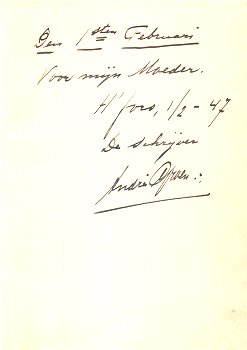 Den 1sten Februari
Voor mijn Moeder.
H'fors, 1/2 - 47
De schrijver
André